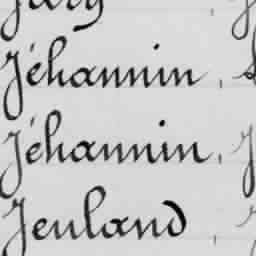 Jéhannin,
Jéhannin,
Jenland,